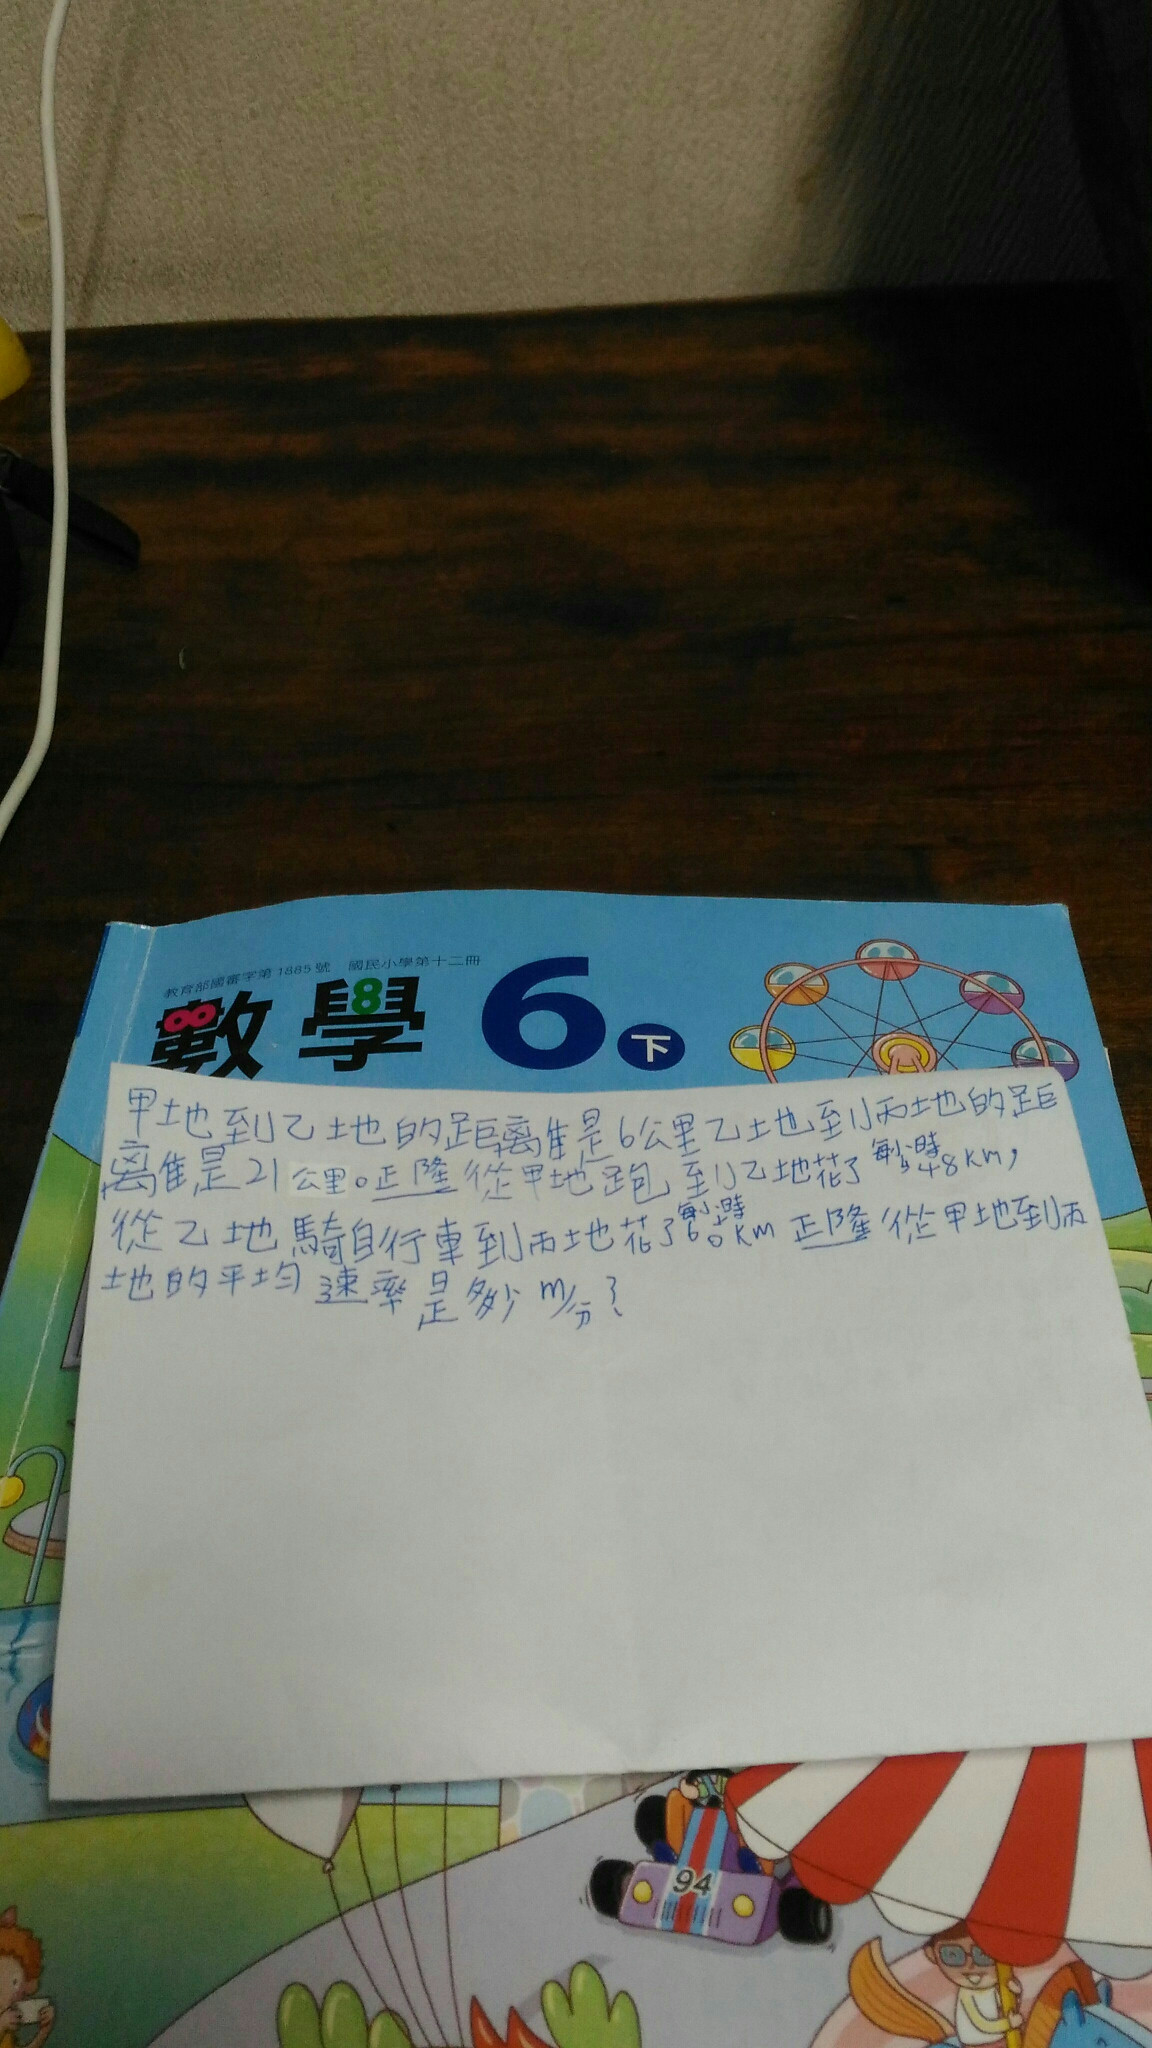 教育部國審字第1885號 國民小學第十二冊
數學6下
甲地到乙地的距離是6公里乙地到丙地的距
離是21公里。正隆從甲地跑到乙地花了每小時48km,
從乙地騎自行車到丙地花了每小時60km正隆從甲地到丙
地的平均速率是多少m/分?
94